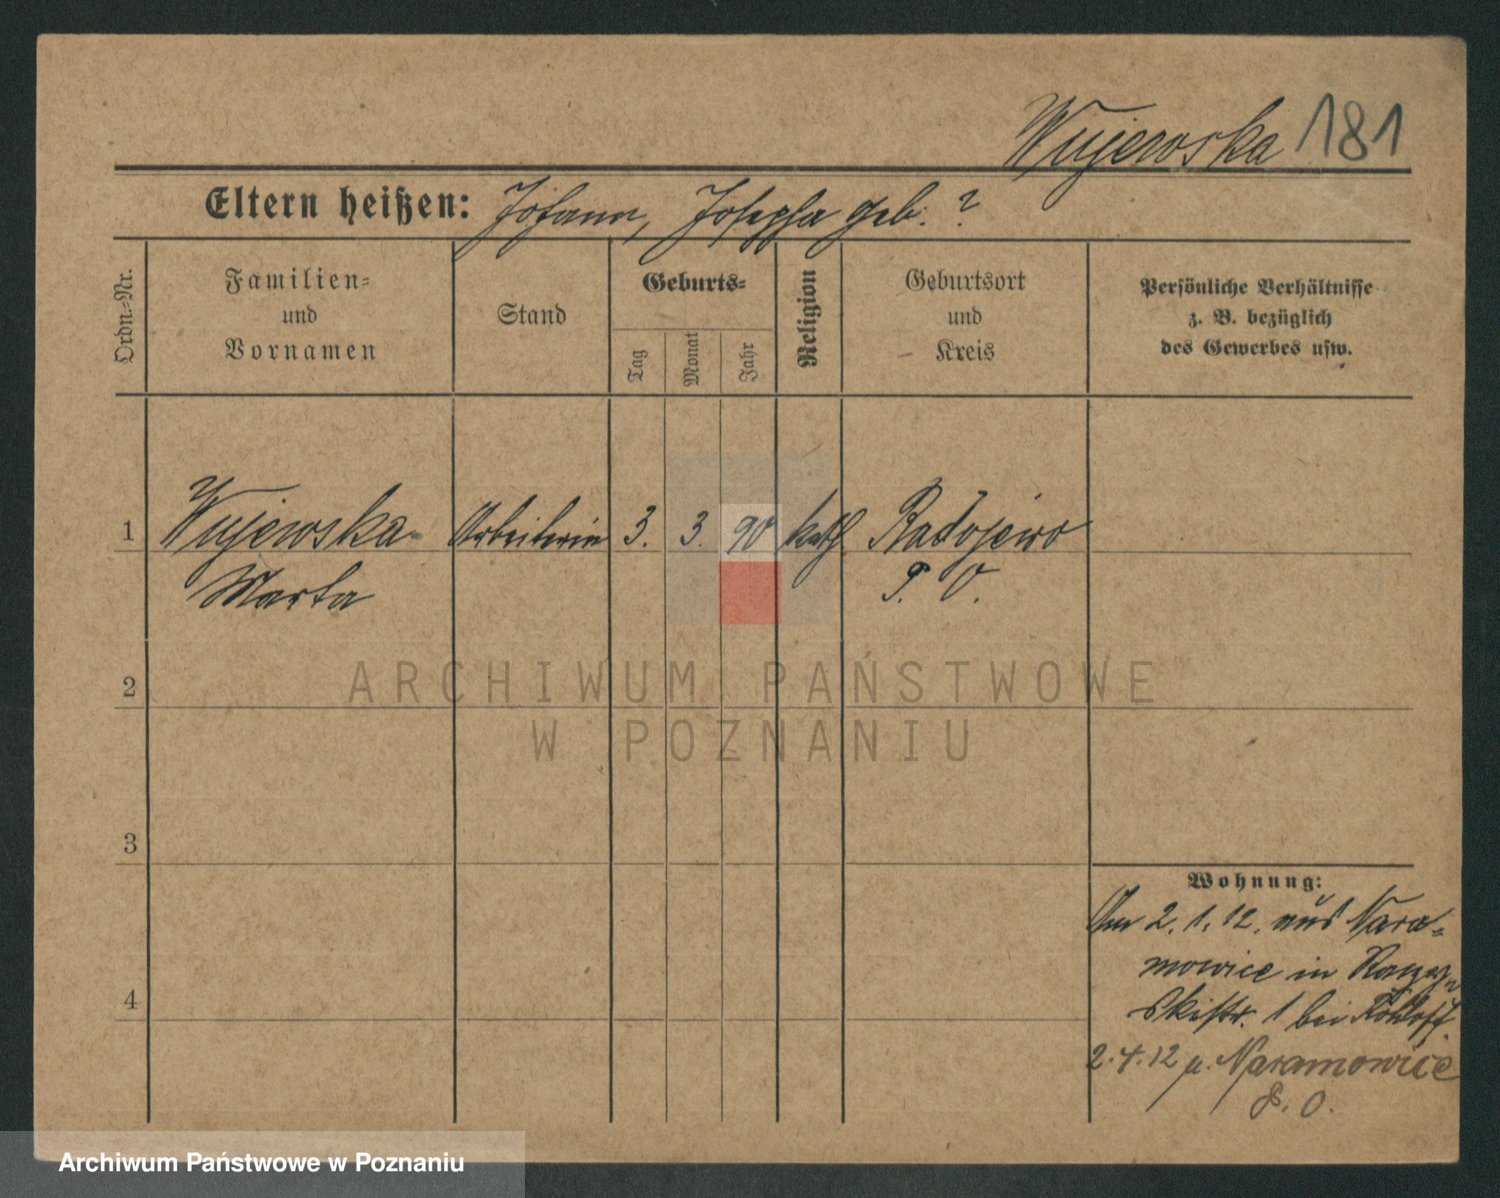 Wujewska 181
Eltern heißen: Johann, Josepha geb. ?
Ordn.-Nr.
Familien-
und
Vornamen
Stand
Geburts-
Tag
Monat
Jahr
Religion
Geburtsort
und
Kreis
Persönliche Verhältnisse
z. B. bezüglich
des Gewerbes usw.
1 Wujewska Arbeiterin 3. 3. 90 kath. Radojewo
Marta P. O.
2
ARCHIWUM PAŃSTWOWE
W POZNANIU
3
Wohnung:
Am 2. 1. 12. aus Nara-
mowice in
skistr. 1 bei
4
2.4.12 n. Naramowice
P. O.
Archiwum Państwowe w Poznaniu